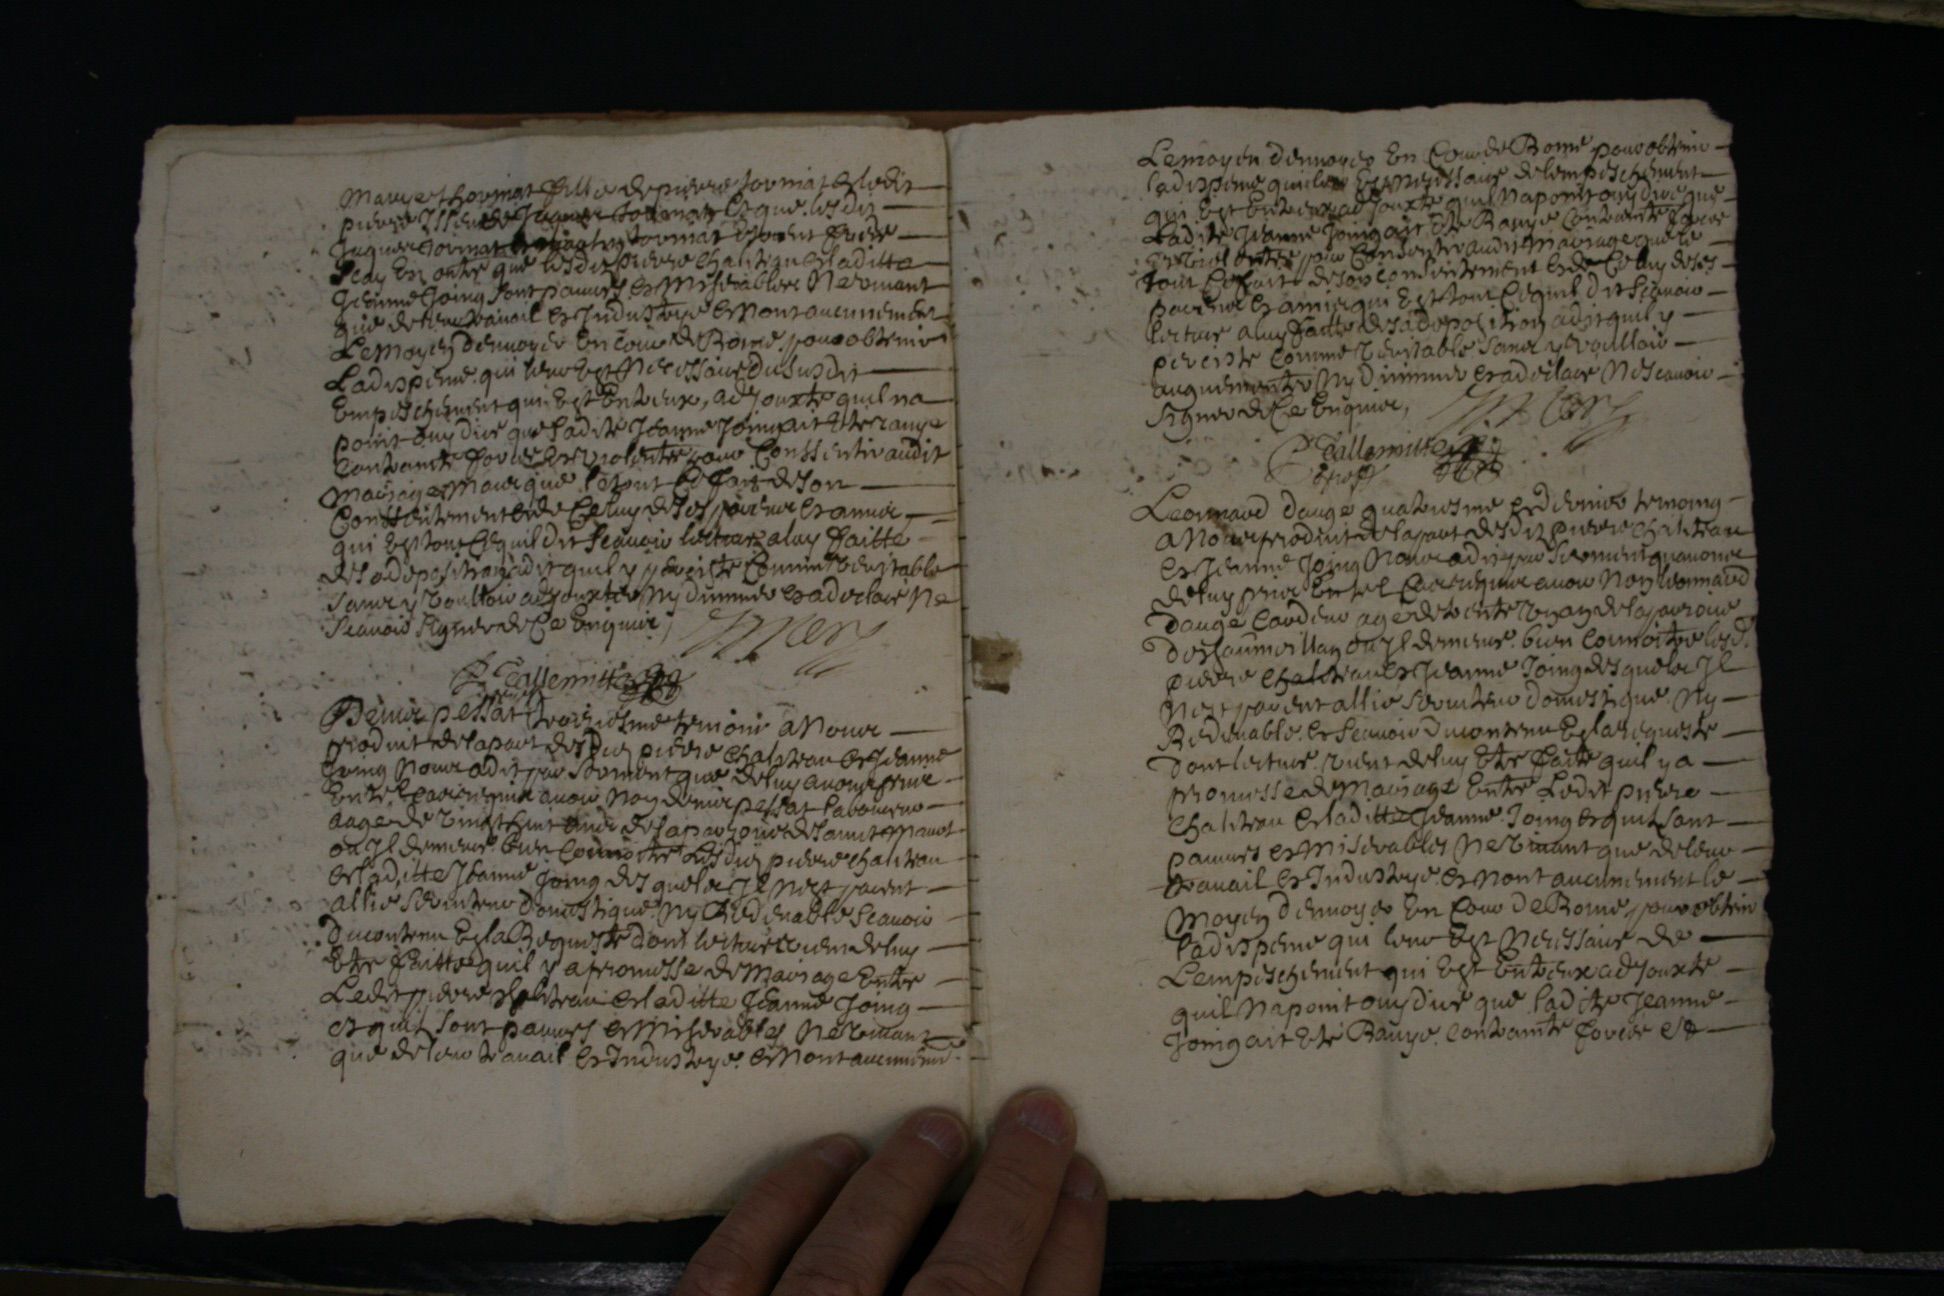 Marye thoriniat fille de pierre toriniat Et ledit
pierre Isseu de Jaques toriniat Et que lesdiz
Jaques toriniat toriniat Estoient frere
Scay En outre que lesdiz pierre Chaliteau Et laditte
Jeanne Joing sont pauvres Et Miserables Ne vivant
que de leur travail Et Industrye Et Nont aucunement
Le Moyen denvoyer En Cour de Rome pour obtenir
La dispense qui leur Est Necessaire du susdit
Empeschement qui Est Enteux, adjouxte quil na
point ouy dire que ladite Jeanne Joing ait Ette ravye
Contrainte forcee Et violentee pour Conssentir audit
Mariage Mais que le tout Est fait de son
Conssentement Et de Celluy de ses parens Et amis
qui Est tout Ce quil dit scavoir lecture a luy faitte
de sa deposition a dit quil y perciste Comme veritable
sans y voulloir adjouxter Ny diminuer Et a declare Ne
scavoir signer de Ce Enquis,
P Tallemitte
Denis pessat troiziesme temoin a Nous
produit de la part desdiz pierre Chaliteau Et Jeanne
Joing Nous a dit par serment que de luy avons prins
En tel Cas requis avoir Nom denis pessat laboureur
aage de vingt huit ans de la parroisse de saint Manot
ou Jl demeure bien Connoitre lesdiz pierre Chaliteau
Et laditte Jeanne Joing desquels Jl Nest parent
allie serviteur domestique Ny Redevable scavoir
du contenu En la Requeste dont lecture vient de luy
Ete faitte quil y a promesse de Mariage Entre
Ledit pierre Chaliteau Et laditte Jeanne Joing
Et quil sont pauvres Et Miserables Ne vivant
que de leur travail Et Industrye Et Nont aucunement
Le moyen denvoyer En Cour de Rome pour obtenir
la dispense qui leur Est Necessaire de lempeschement
qui Est Enteux adjouxte quil Na point ouy dire que
Ladite Jeanne Joing ait Ete Ravye Contrainte forcee
pour Consentir audit Mariage que le
tout Est fait de son consentement Et de Celuy de ses
parens Et amis qui Est tout Ce quil dit scavoir
lecture a luy faitte de sa deposition a dit quil y
perciste Comme veritable sans y voulloir
augmenter Ny diminuer Et a declare Ne scavoir
signer de Ce Enquis,
P Tallemitte
Leonnard dauge quatriesme Et dernier temoing
a Nous produit de la part desdiz pierre Chaliteau
Et Jeanne Joing Nous a dit par serment quavons
de luy prins En tel Cas requis avoir Nom leonnard
dauge Cardeur age de trente de la parroisse
ou Jl demeure bien Connoitre lesd.
pierre Chaliteau Et Jeanne Joing desquels Jl
Nest parent allie serviteur domestique Ny
Redevable Et scavoir du contenu En la requeste
dont lecture vient de luy Ete faite quil y a
promesse de Mariage Entre Ledit pierre
Chaliteau Et laditte Jeanne Joing Et quil sont
pauvres Et Miserables Ne vivant que de leur
travail Et Industrye Et Nont aucunement le
Moyen denvoyer En Cour de Rome pour obtenir
la dispense qui leur Est Necessaire de
Lempeschement qui Est Enteux adjouxte
quil Na point ouy dire que ladite Jeanne
Joing ait Ete Ravye Contrainte forcee Et